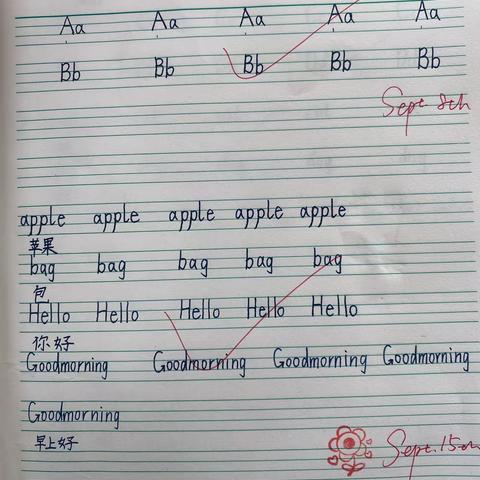 Aa Aa Aa Aa Aa
Bb Bb Bb Bb Bb
Sept. 8th
apple apple apple apple apple
苹果
bag bag bag bag bag
包
Hello Hello Hello Hello Hello
你好
Goodmorning Goodmorning Goodmorning Goodmorning
Goodmorning
早上好
Sept. 15th